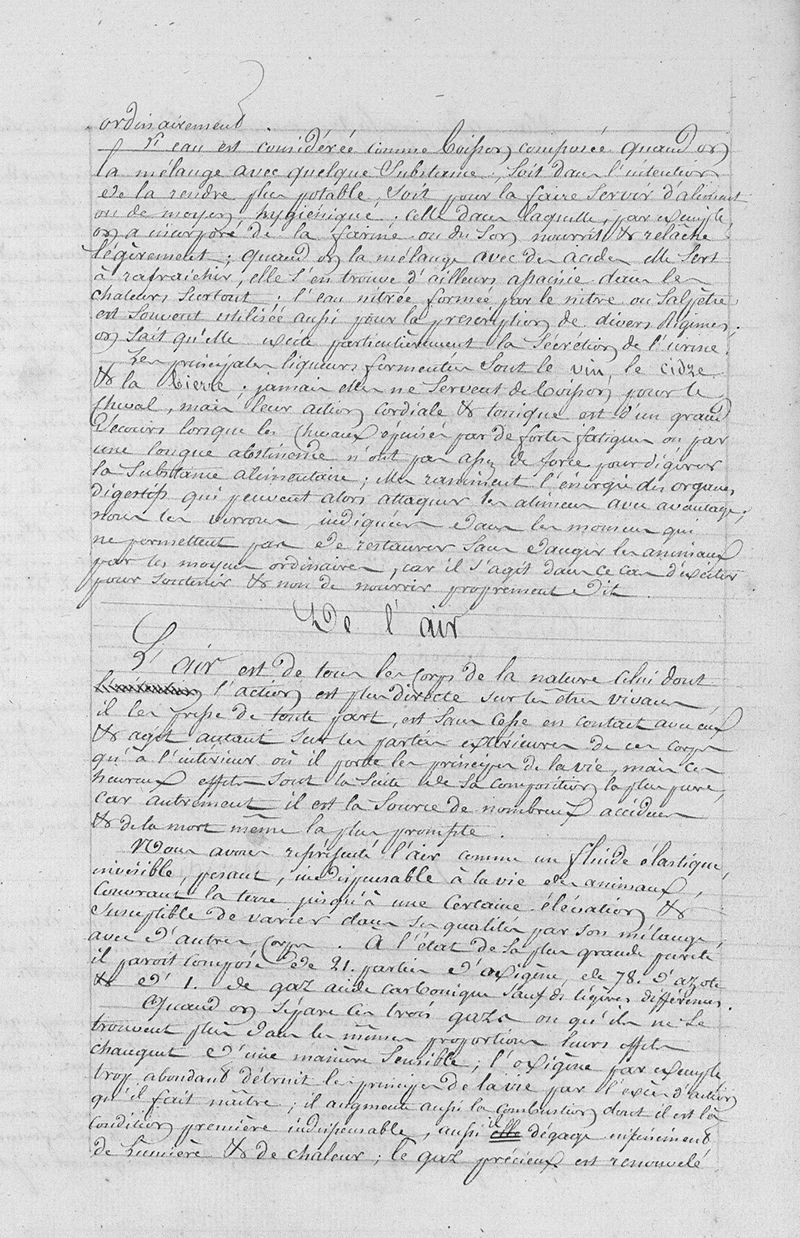 ordinairement.
L'eau est considérée comme boisson composée quand on
la mélange avec quelque substance, soit dans l'intention
de la rendre plus potable, soit pour la faire servir d'aliment
ou de moyen hygiénique. celle dans laquelle, par exemple
on a incorporé de la farine ou du son nourrit & relâche
légèrement; quand on la mélange avec des acides elle sert
à rafraichir, elle s'en trouve d'ailleurs assainie dans les
chaleurs surtout; l'eau nitrée formée par le nitre ou salpêtre
est souvent utilisée aussi pour la prescription de divers régimes.
on sait qu'elle excite particulièrement la sécrétion de l'urine.
Les principales liqueurs fermentées sont le vin, le cidre
& la bierre; jamais elles ne servent de boisson pour le
cheval, mais leur action cordiale & tonique est d'un grand
secours lorsque les chevaux épuisés par de fortes fatigues ou par
une longue abstinence n'ont pas assez de force pour digérer
la substance alimentaire; elles raniment l'énergie des organes
digestifs qui peuvent alors attaquer les alimens avec avantage;
nous les verrons indiquées dans les momens qui
ne permettent pas de restaurer sans danger les animaux
par les moyens ordinaires, car il s'agit dans ce cas d'exciter
pour soutenir & non de nourrir proprement dit.
De l'air
L'air est de tous les corps de la nature celui dont
l'action est plus directe sur les êtres vivans,
il les presse de toute part, est sans cesse en contact avec eux
& agit autant sur les parties extérieures de ces corps
qu'à l'intérieur où il porte les principes de la vie, mais ces
heureux effets sont la suite de sa composition la plus pure,
car autrement il est la source de nombreux accidens
& de la mort même la plus prompte.
Nous avons représenté l'air comme un fluide élastique,
invisible, pesant, indispensable à la vie des animaux,
couvrant la terre jusqu'à une certaine élévation &
susceptible de varier dans ses qualités par son mélange
avec d'autres corps. À l'état de sa plus grande pureté
il paroît composé de 21. parties d'oxigène, de 78. d'azote
& d'1. de gaz acide carbonique sauf de légères différences.
Quand on sépare ces trois gaz ou qu'ils ne se
trouvent plus dans les mêmes proportions leurs effets
changent d'une manière sensible; l'oxigène par exemple
trop abondant détruit les principes de la vie par l'excès d'action
qu'il fait naître; il augmente aussi la combustion dont il est la
condition première indispensable, aussi il elle dégage infiniment
de lumière & de chaleur; le gaz précieux est renouvelé